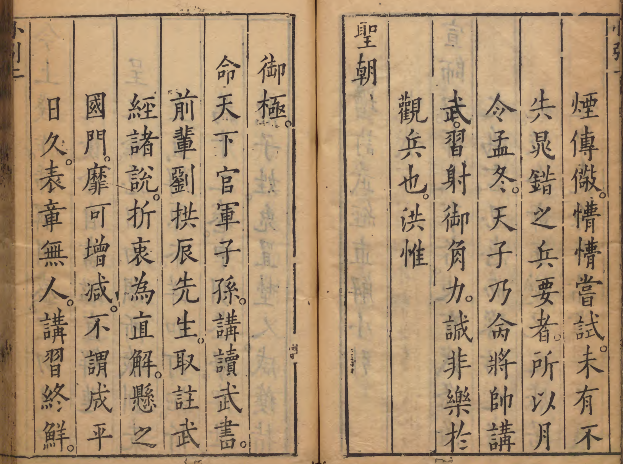 煙傳儆。懵懵嘗試。未有不
失晁錯之兵要者。所以月
令孟冬。天子乃命將帥講
武。習射御角力。誠非樂於
觀兵也。洪惟
聖朝
御極。
命天下官軍子孫。講讀武書。
前輩劉拱辰先生。取註武
經諸說。折衷為直解。懸之
國門。靡可增減。不謂成平
日久。表章無人。講習終鮮。